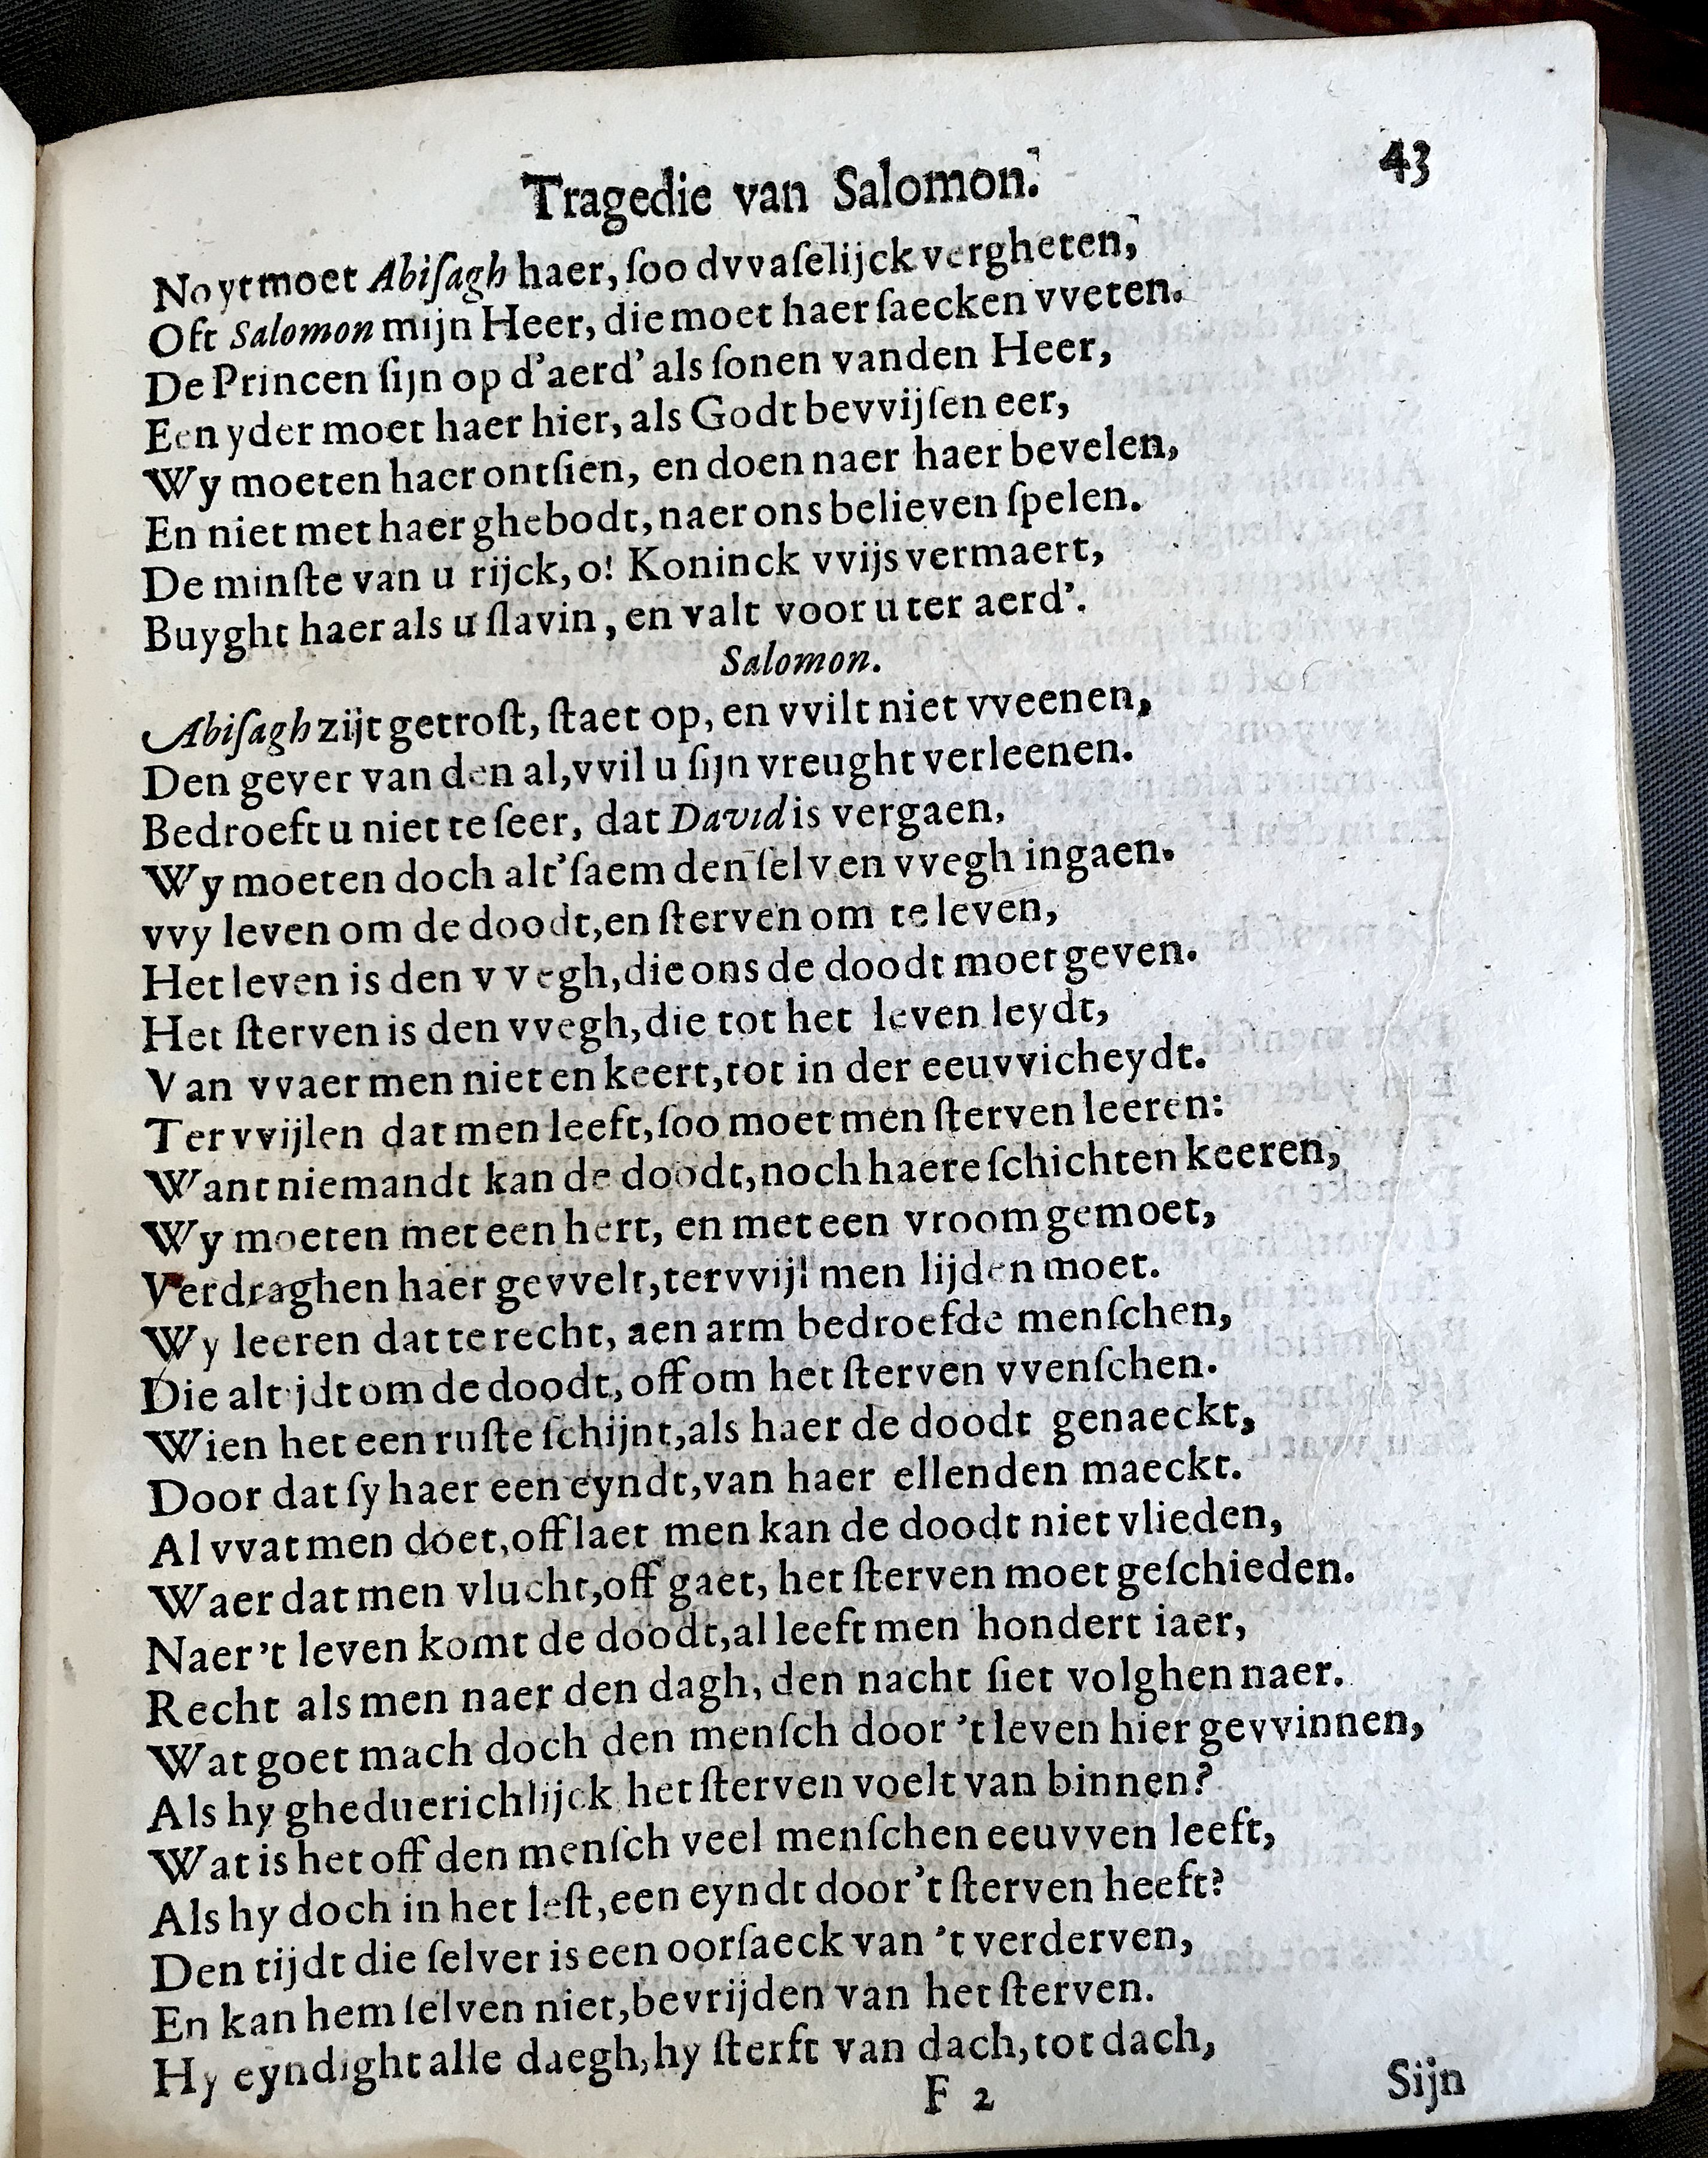 Tragedie van Salomon. 43
Noyt moet Abiſagh haer, ſoo dvvaſelijck vergheten,
Oft Salomon mijn Heer, die moet haer ſaecken vveten.
De Princen ſijn op d'aerd' als ſonen vanden Heer,
Een yder moet haer hier, als Godt bevvijſen eer,
Wy moeten haer ontſien, en doen naer haer bevelen,
En niet met haer ghebodt, naer ons believen ſpelen.
De minſte van u rijck, o! Koninck vvijs vermaert,
Buyght haer als u ſlavin, en valt voor u ter aerd'.
Salomon.
Abiſagh zijt getroſt, ſtaet op, en vvilt niet vveenen,
Den gever van den al, vvil u ſijn vreught verleenen.
Bedroeft u niet te ſeer, dat David is vergaen,
Wy moeten doch alt'ſaem den ſelven vvegh ingaen.
vvy leven om de doodt, en ſterven om te leven,
Het leven is den vvegh, die ons de doodt moet geven.
Het ſterven is den vvegh, die tot het leven leydt,
Van vvaer men niet en keert, tot in der eeuvvicheydt.
Tervvijlen dat men leeft, ſoo moet men ſterven leeren:
Want niemandt kan de doodt, noch haere ſchichten keeren,
Wy moeten met een hert, en met een vroom gemoet,
Verdraghen haer gevvelt, tervvijl men lijden moet.
Wy leeren dat te recht, aen arm bedroefde menſchen,
Die altijdt om de doodt, off om het ſterven vvenſchen.
Wien het een ruſte ſchijnt, als haer de doodt genaeckt,
Door dat ſy haer een eyndt, van haer ellenden maeckt.
Al vvat men doet, off laet men kan de doodt niet vlieden,
Waer dat men vlucht, off gaet, het ſterven moet geſchieden.
Naer 't leven komt de doodt, al leeft men hondert iaer,
Recht als men naer den dagh, den nacht ſiet volghen naer.
Wat goet mach doch den menſch door 't leven hier gevvinnen,
Als hy gheduerichlijck het ſterven voelt van binnen?
Wat is het off den menſch veel menſchen eeuvven leeft,
Als hy doch in het leſt, een eyndt door 't ſterven heeft?
Den tijdt die ſelver is een oorſaeck van 't verderven,
En kan hem ſelven niet, bevrijden van het ſterven.
Hy eyndight alle daegh, hy ſterft van dach, tot dach,
F 2 Sijn